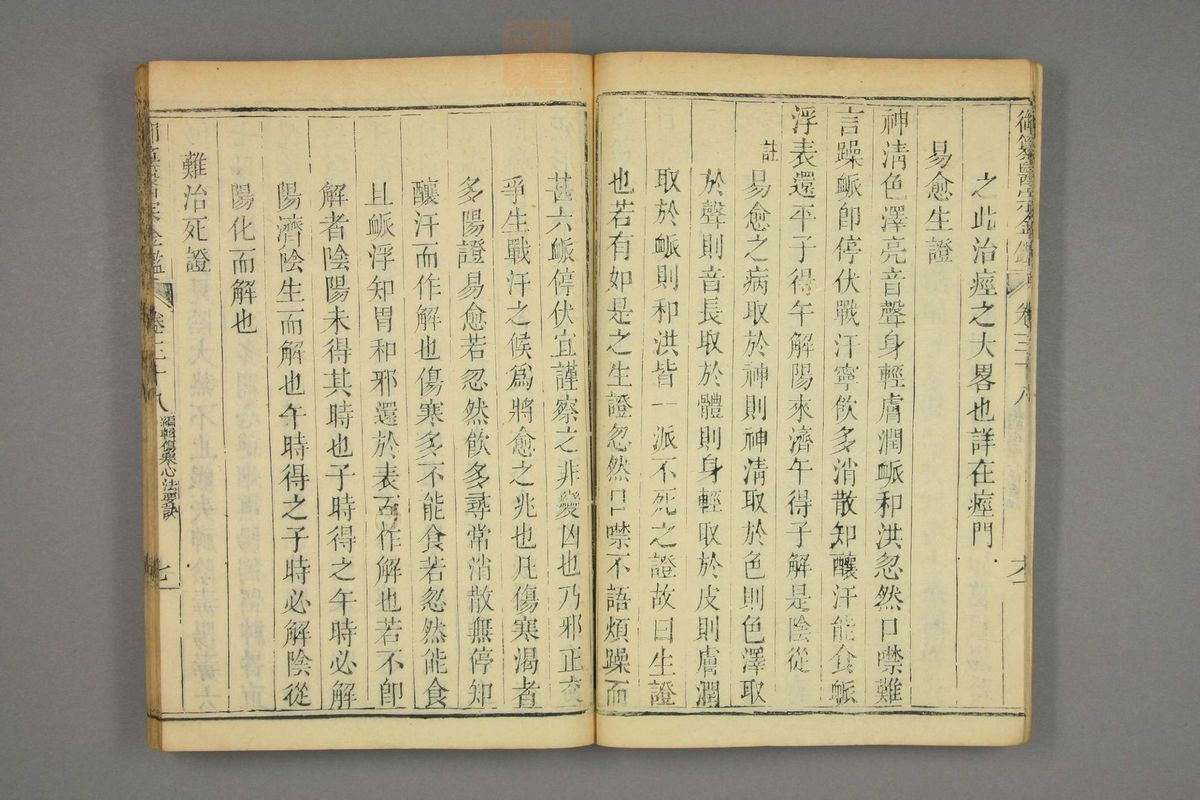 御纂醫宗金鑑 卷三十八 六
之此治痙之大畧也詳在痙門
易愈生證
神清色澤亮音聲身輕膚潤䘑和洪忽然口噤難
言躁䘑卽停伏戰汗寧飲多消散知釀汗能食䘑
浮表還平子得午解陽來濟午得子解是陰從
註易愈之病取於神則神清取於色則色澤取
於聲則音長取於體則身輕取於皮則膚潤
取於䘑則和洪皆一派不死之證故曰生證
也若有如是之生證忽然口噤不語煩躁而
甚六䘑停伏宜謹察之非變凶也乃邪正交
爭生戰汗之候爲將愈之兆也凡傷寒渴者
多陽證易愈若忽然飲多尋常消散無停知
釀汗而作解也傷寒多不能食若忽然能食
且䘑浮知胃和邪還於表而作解也若不卽
解者陰陽未得其時也子時得之午時必解
陽濟陰生而解也午時得之子時必解陰從
陽化而解也
難治死證
卷三十八 編輯傷寒心法要訣 七